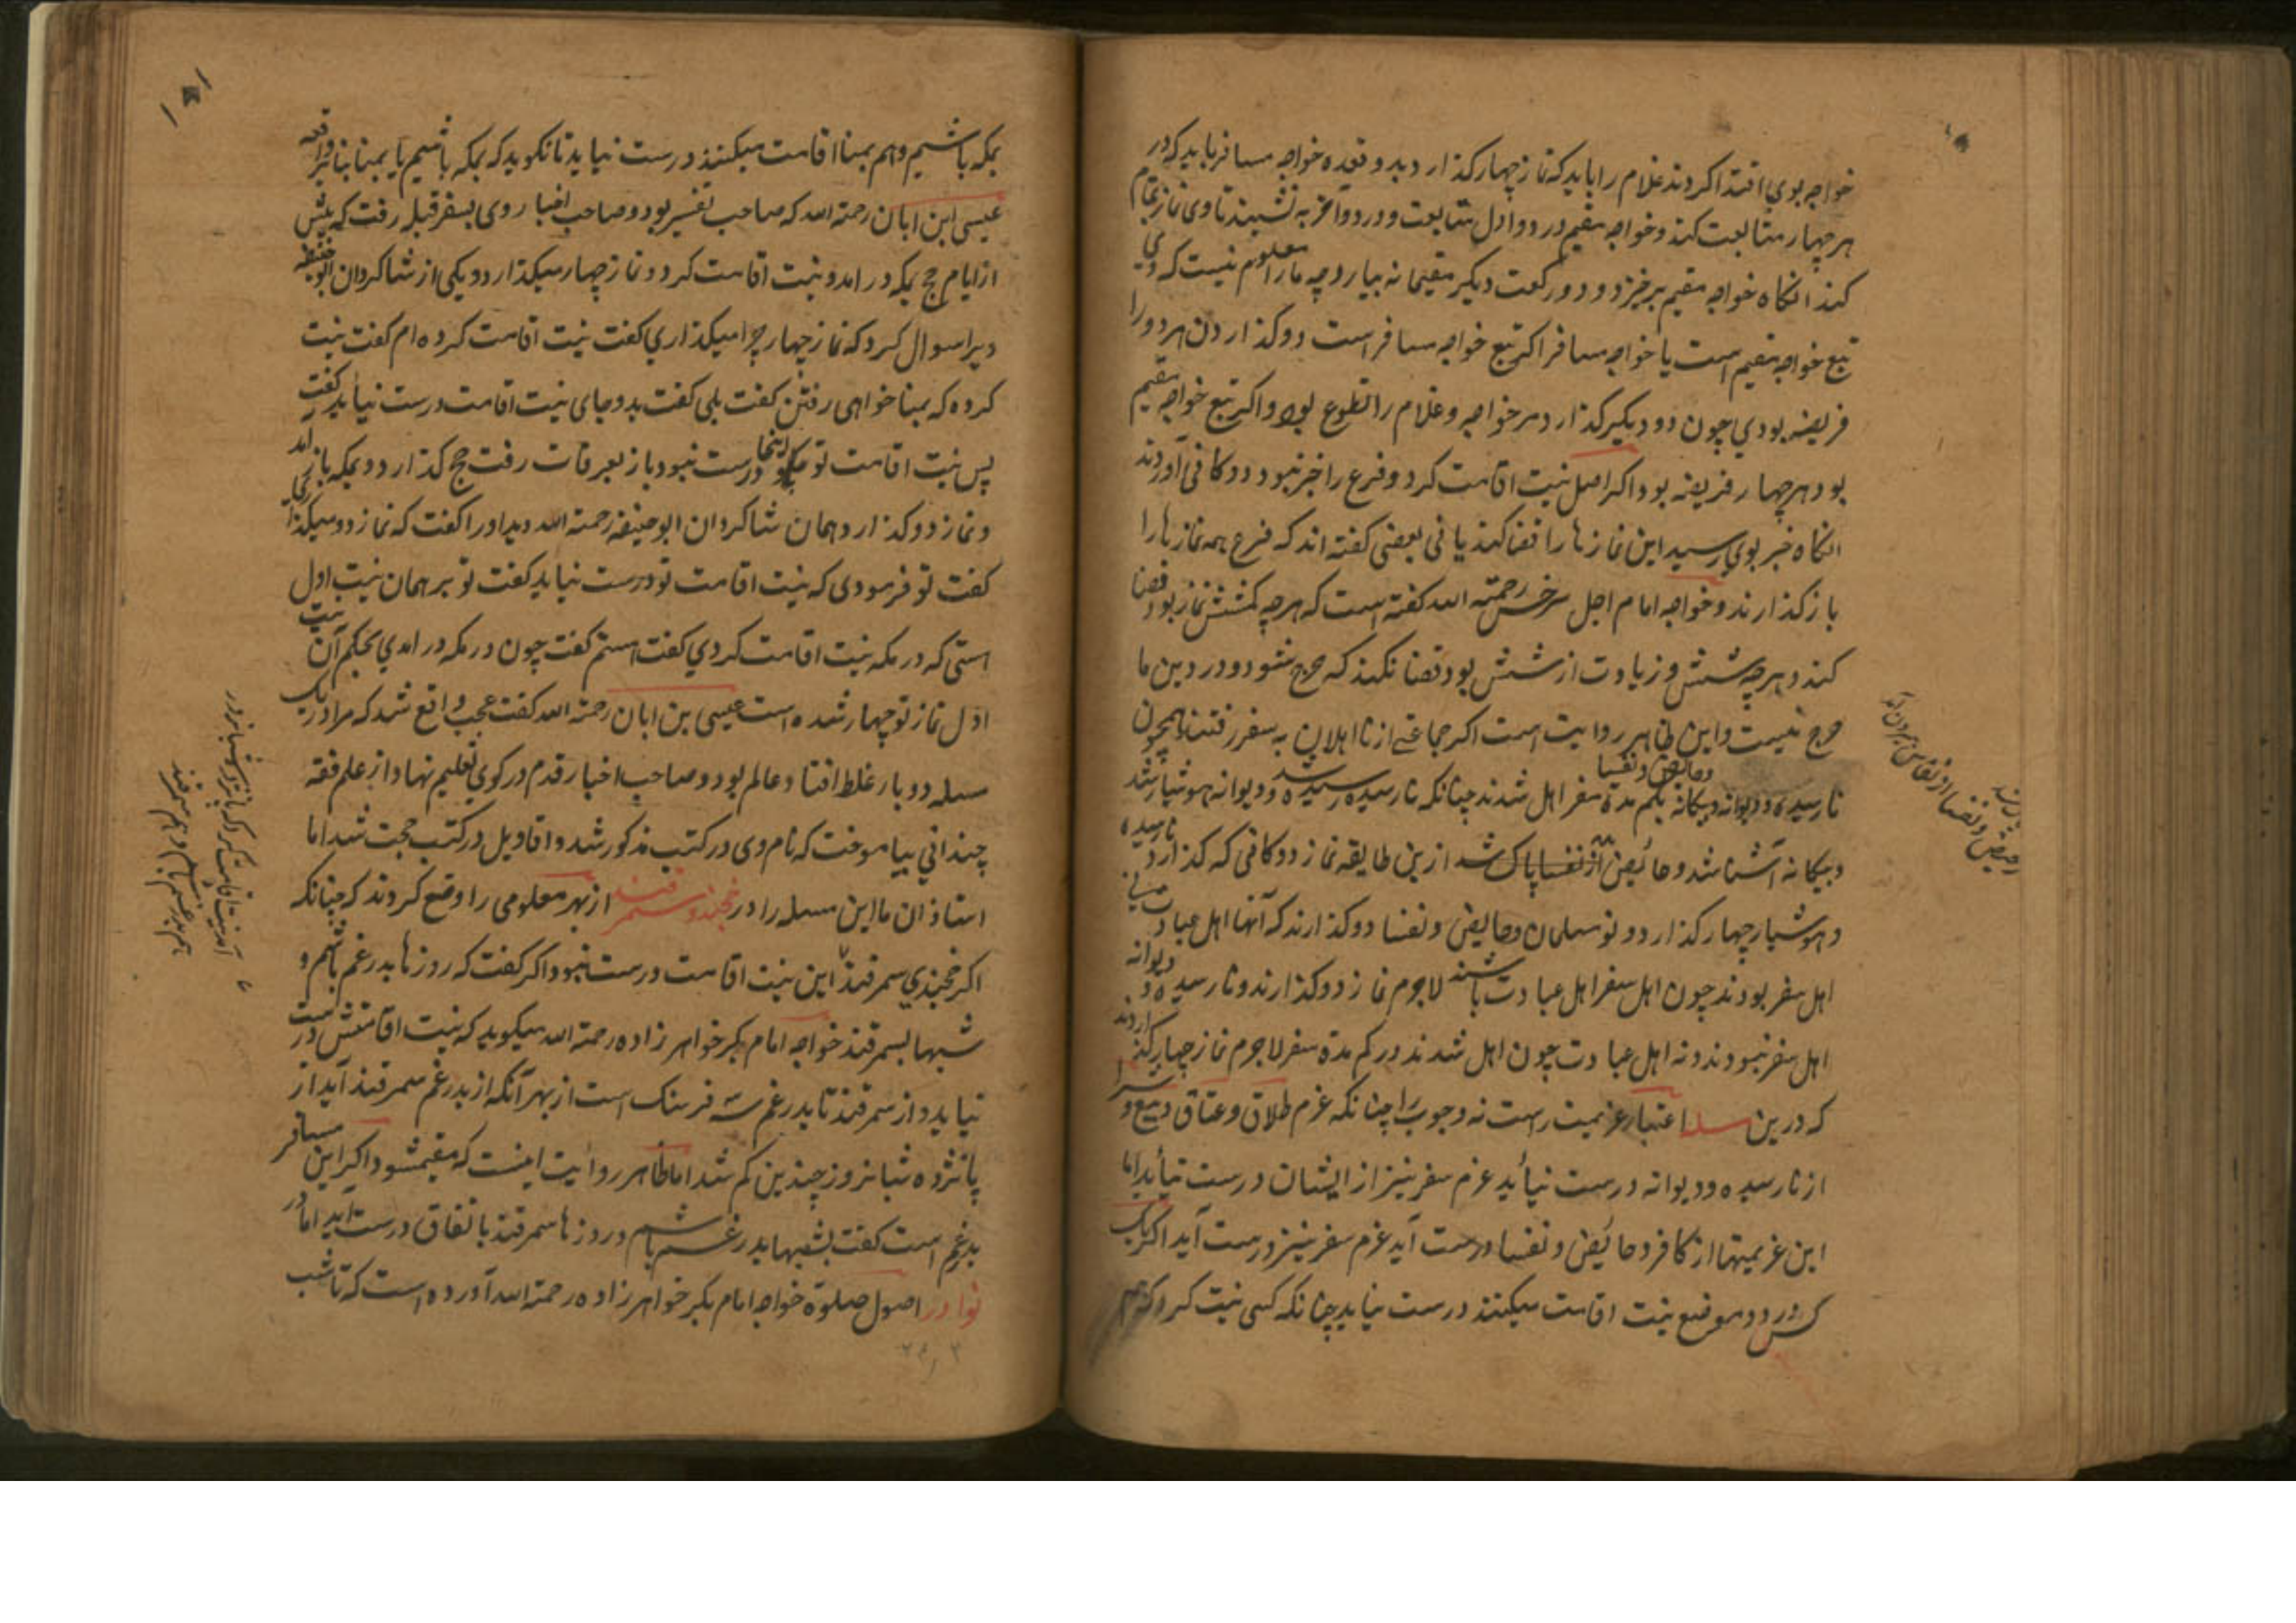 خواجه بوی اقتدا کردند غلام را باید که نماز چهار کذارد و بدو قعده خواجه مسافر باید که در
هر چهار متابعت کند و خواجه مقیم در دو اول متابعت و در دو آخر به نشیند تا وی نماز تمام
کند انکاه خواجه مقیم برخیزد و دو رکعت دیکر مقیمانه بیارد چه ما را معلوم نیست که وی
تبع خواجه مقیم است یا خواجه مسافر اکر تبع خواجه مسافر است دو کذاردن هر دو را
فریضه بودی چون دو دیکر کذارد مر خواجه و غلام را تطوع بود و اکر تبع خواجه مقیم
بود هر چهار فریضه بود اکر اصل نیت اقامت کرد و فرع را خبر نبود دوکانی آوردند
انکاه خبر بوی رسید این نمازها را قضا کند یا نی بعضی کفته اند که فرع همه نمازها را
باز کذارند و خواجه امام اجل سرخسی رحمته الله کفته است که هر چه کم شش نماز بود قضا
کند و هر چه شش و زیادت از شش بود قضا نکند که حرج شود و در دین ما
حرج نیست و این ظاهر روایت است اکر جماعتی از نا اهلان به سفر رفتند همچون
نارسیده و دیوانه و بیکانه و حایض و نفسا بکم مده سفر اهل شدند چنانکه نارسیده رسیده شد و دیوانه هوشیار شد
و بیکانه آشنا شد و حائض از نفسا پاک شد ازین طایفه نماز دوکانی که کذارد نارسیده
و هوشیار چهار کذارد و نو مسلمان و حایض و نفسا دو کذارند که آنها اهل عبادت
اهل سفر بودند چون اهل سفر اهل عبادت باشند لاجرم نماز دو کذارند و نارسیده و دیوانه
اهل سفر نبودند و نه اهل عبادت چون اهل شدند در کم مده سفر لاجرم نماز چهار کذاردند
که درین مسله اعتبار عزیمت راست نه وجوب را چنانکه عزم طلاق و عتاق و بیع و شرا
از نارسیده و دیوانه درست نیاید عزم سفر نیز از ایشان درست نیاید اما
این عزیمتها از کافر و حائض و نفسا درست آید عزم سفر نیز درست آید اکر یک
کس در دو موضع نیت اقامت میکنند درست نیاید چنانکه کسی نیت کرد که هم
بمکه باشیم و هم بمنا اقامت میکنند درست نیاید تا نکوید که بمکه باشیم یا بمنا بنا بر واقعه
عیسی ابن ابان رحمته الله که صاحب تفسیر بود و صاحب اخبار وی بسفر قبله رفت که پیش
از ایام حج بمکه در امد و نیت اقامت کرد و نماز چهار میکذارد و یکی از شاکردان ابوحنیفه
ویرا سوال کرد که نماز چهار چرا میکذاری کفت نیت اقامت کرده ام کفت نیت
کرده که بمنا خواهی رفتن کفت بلی کفت بدو جای نیت اقامت درست نیاید کفت
پس نیت اقامت تو اینجا درست نبود باز بعرفات رفت حج کذارد و بمکه باز امد
و نماز دو کذارد همان شاکردان ابوحنیفه رحمته الله دید او را کفت که نماز دو میکذاری
کفت تو فرمودی که نیت اقامت تو درست نیاید کفت تو بر همان نیت اول
استی که در مکه نیت اقامت کردی کفت استم کفت چون در مکه در امدی بحکم آن نیت
اول نماز تو چهار شده است عیسی بن ابان رحمته الله کفت عجب واقع شد که مرا در یک
مسله دو بار غلط افتاد و عالم بود و صاحب اخبار قدم در کوی تعلیم نهاد و از علم فقه
چندانی بیاموخت که نام وی در کتب مذکور شد و اقاویل در کتب حجت شد اما
استاذان ما این مسله را در خجند و سمرقند از بهر معلومی را وضع کردند که چنانکه
اکر خجندی سمرقند این نیت اقامت درست نبود اکر کفت که روزها بدرغم باشم و
شبها بسمرقند خواجه امام بکر خواهرزاده رحمته الله میکوید که نیت اقامتش درست
نیاید و از سمرقند تا بدرغم سه فرسنک است از بهر آنکه از بدرغم سمرقند آید از
پانزده شبانروز چندین کم شد اما ظاهر روایت اینست که مقیم شود اکر این مسافر
بدرغم است کفت بشبها بدرغم باشم و روزها سمرقند باتفاق درست آید اما در
نوادر اصول صلوة خواجه امام بکر خواهرزاده رحمته الله آورده است که تا شب